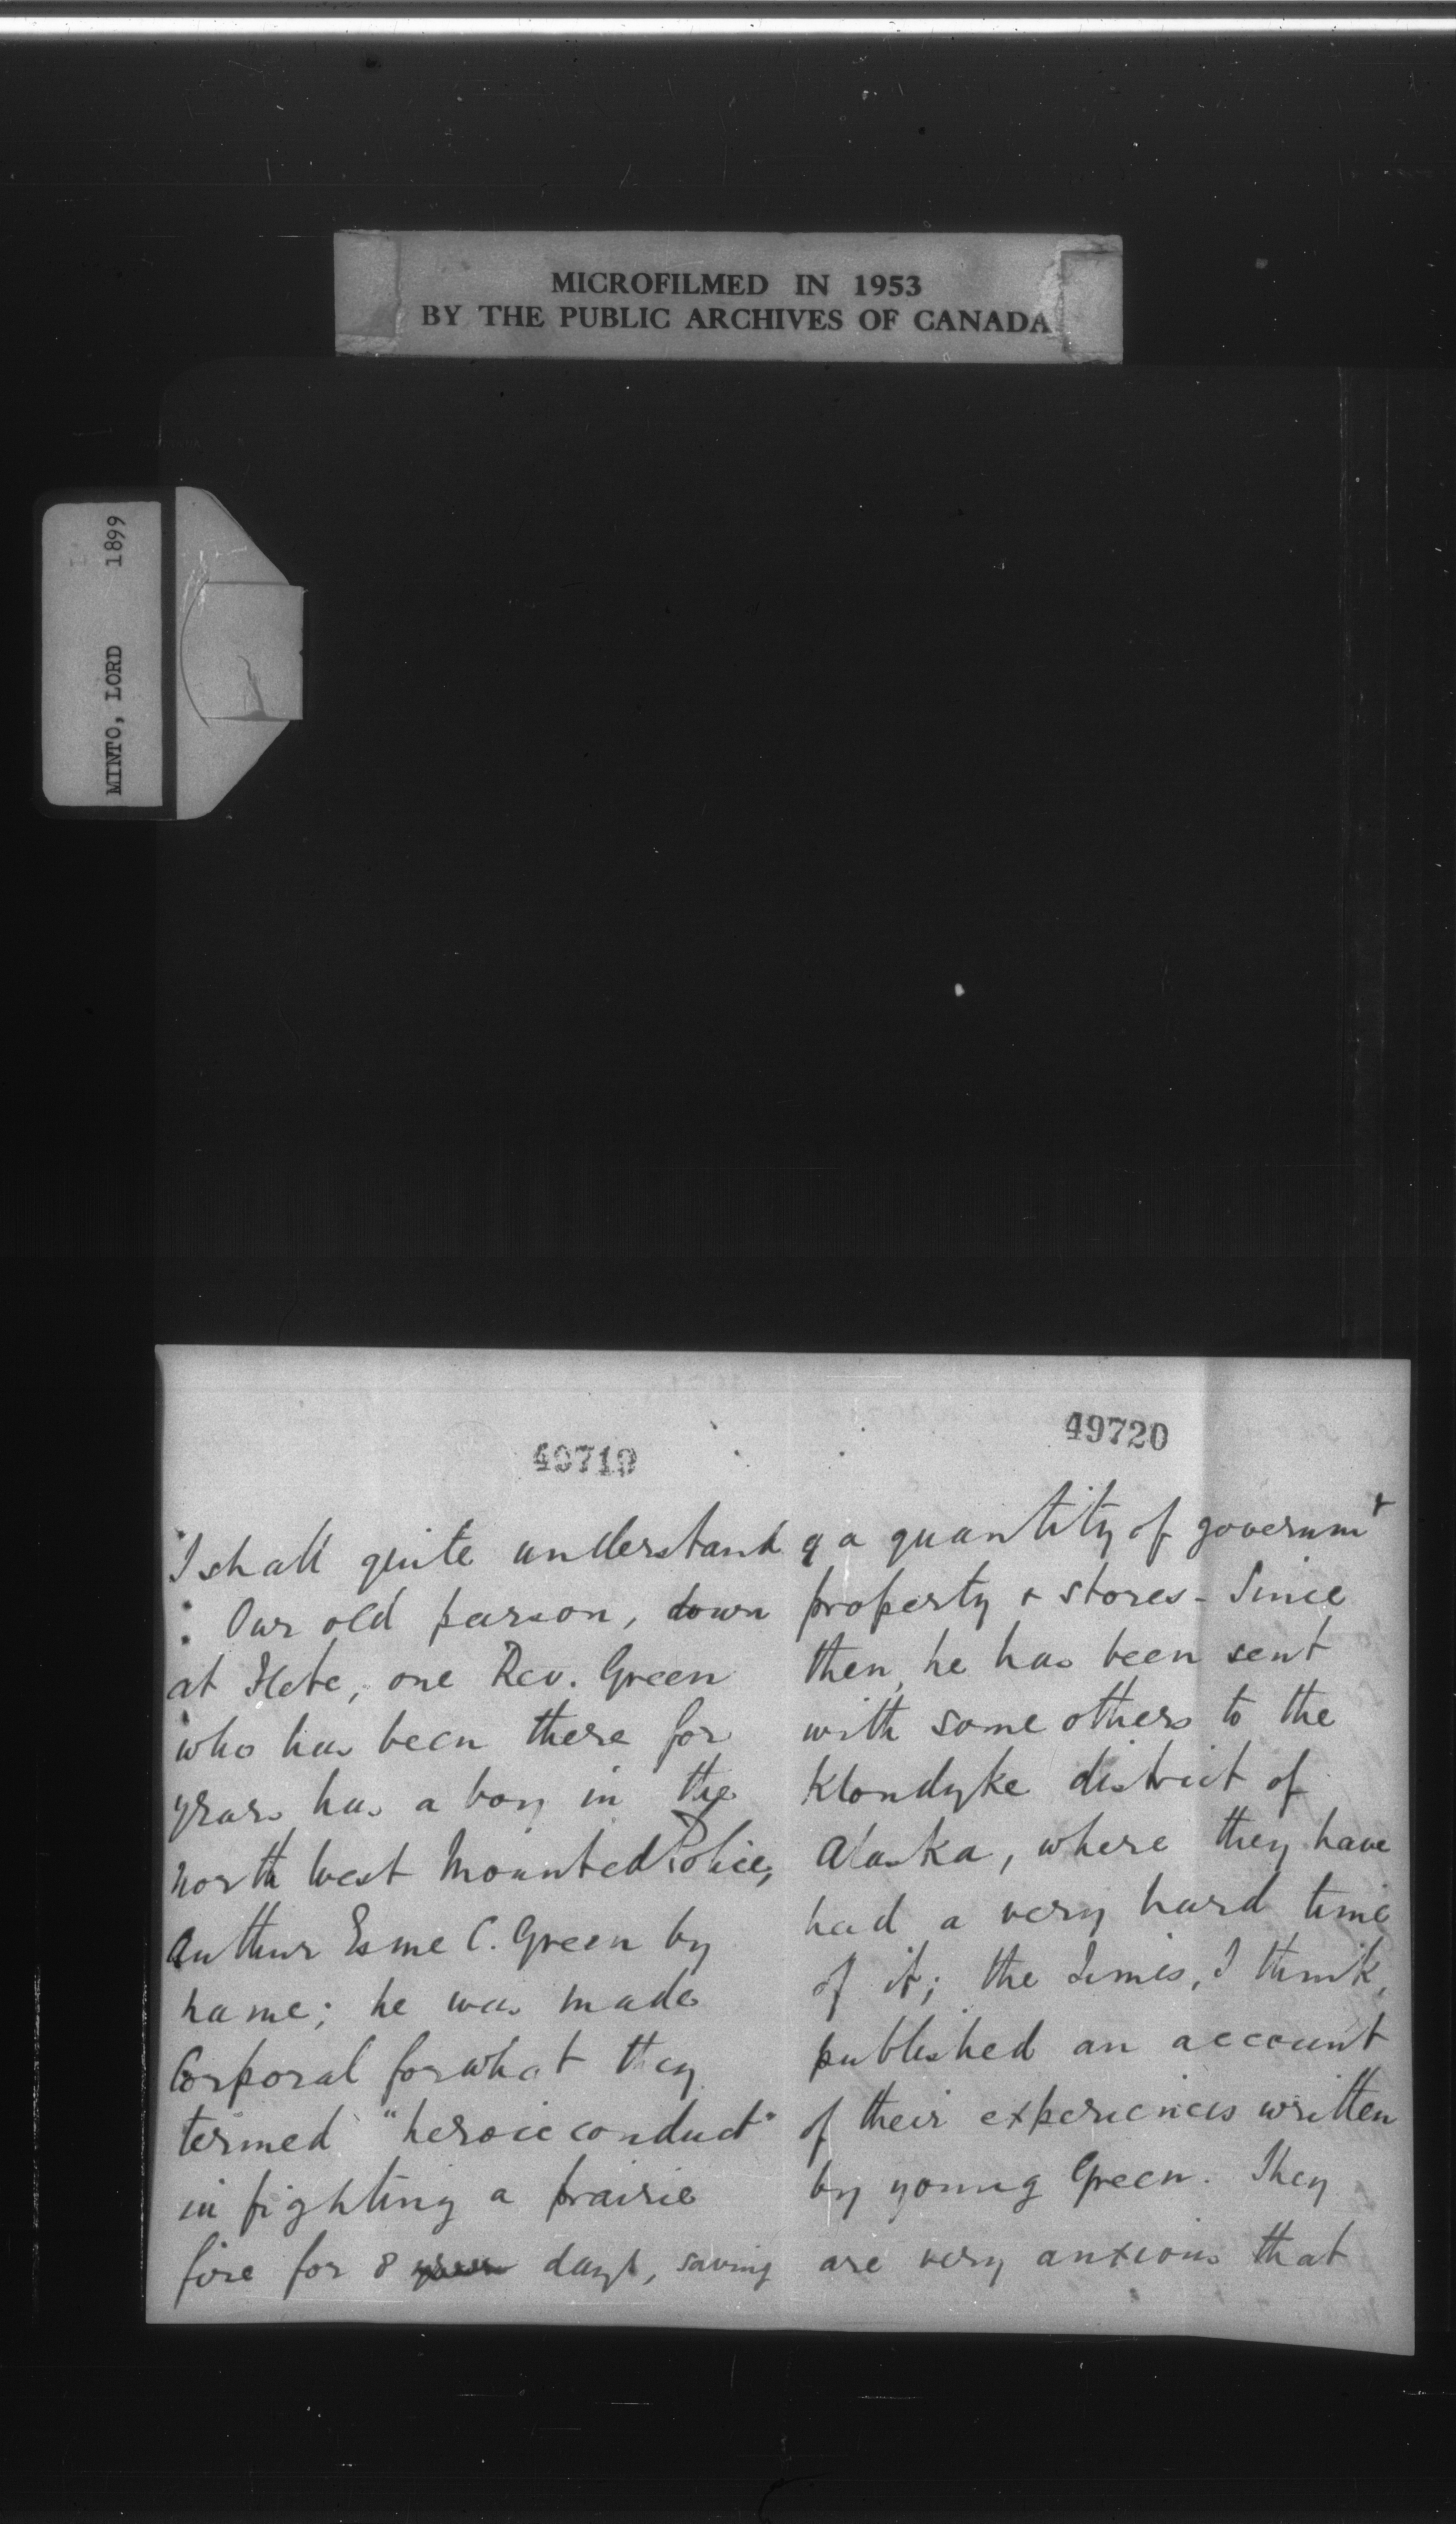 MICROFILMED IN 1953
BY THE PUBLIC ARCHIVES OF CANADA
MINTO, LORD 1899
49719
I shall quite understand
Our old parson, down
at Flete, one Rev. Green
who has been there for
years has a boy in the
North West Mounted Police,
Arthur Esme C. Green by
name; he was made
Corporal for what they
termed "heroic conduct"
in fighting a prairie
fire for 8 days, saving
49720
a quantity of governmt
property & stores - Since
then, he has been sent
with some others to the
Klondyke district of
Alaska, where they have
had a very hard time
of it; the Times, I think,
published an account
of their experiences written
by young Green. They
are very anxious that